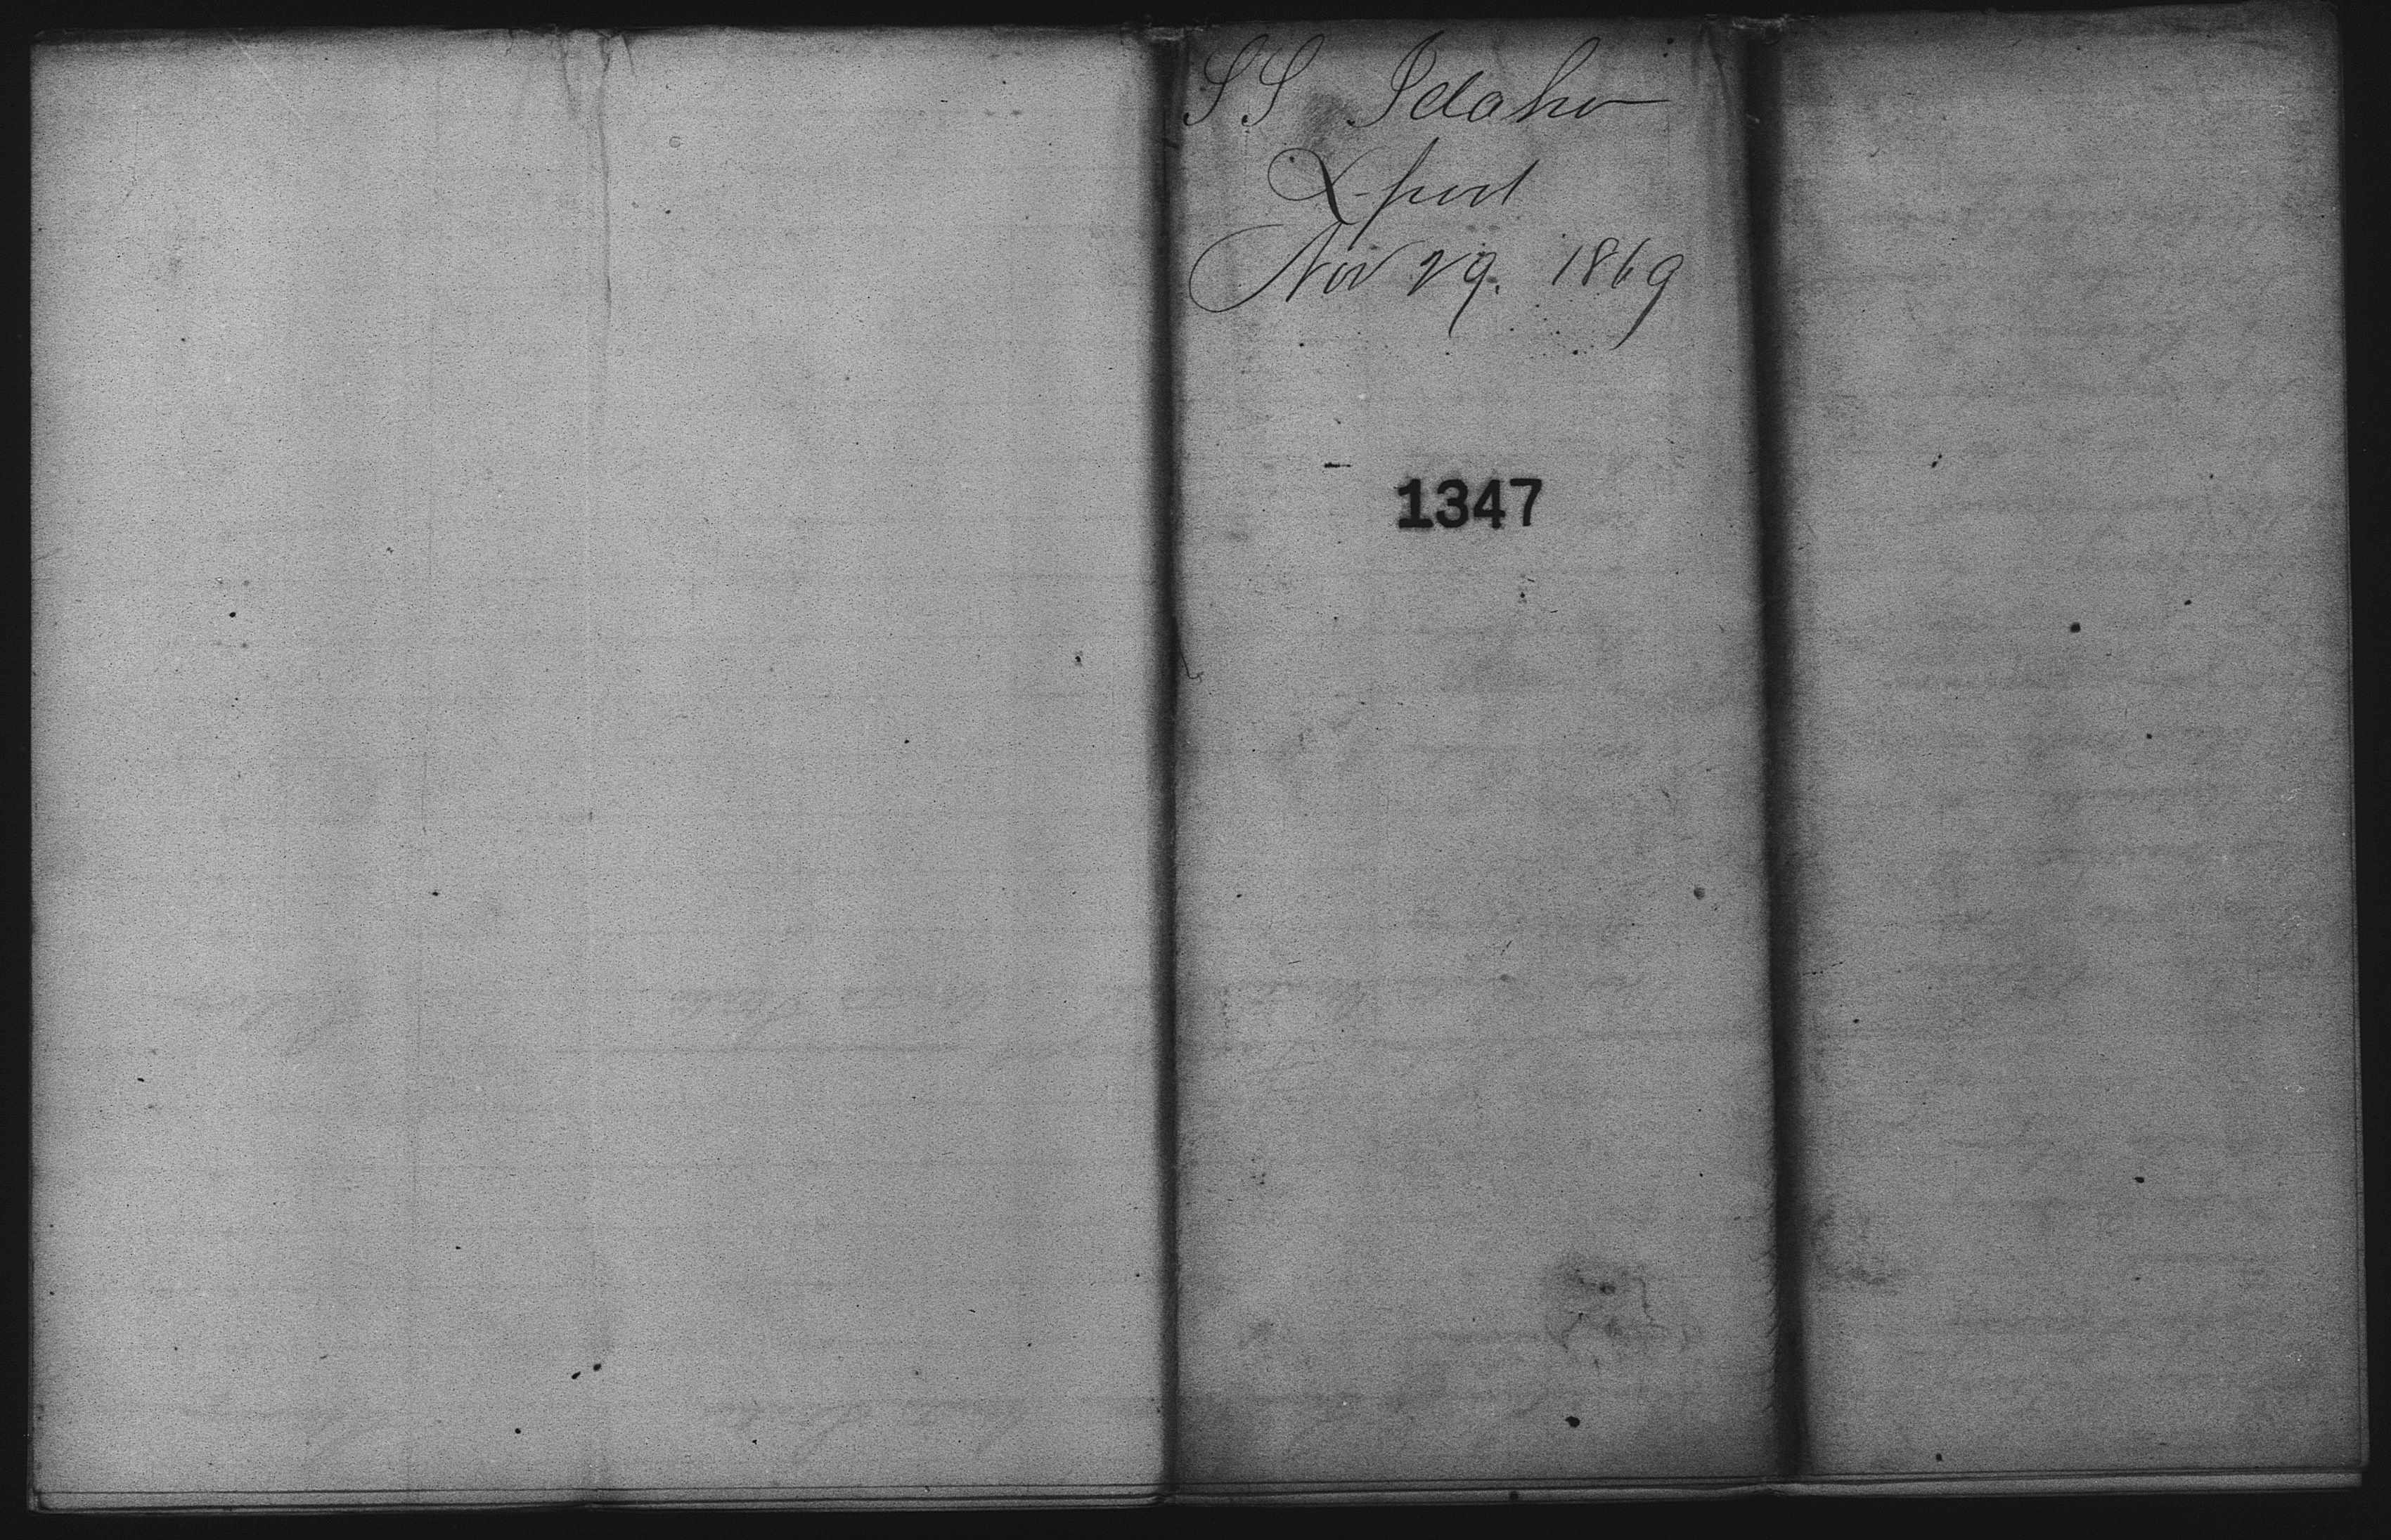 SS Idaho
L-pool
Nov 29. 1869
1347